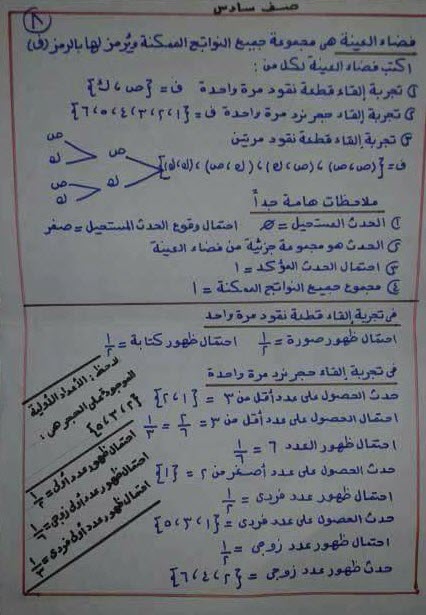 صف سادس
٨
فضاء العينة هى مجموعة جميع النواتج الممكنة ويُرمز لها بالرمز (ف)
اكتب فضاء العينة لكل من :
١ تجربة إلقاء قطعة نقود مرة واحدة ف = {ص ، ك}
٢ تجربة إلقاء حجر نرد مرة واحدة ف = {١ ، ٢ ، ٣ ، ٤ ، ٥ ، ٦}
٣ تجربة إلقاء قطعة نقود مرتين
ف = {(ص ، ص) ، (ص ، ك) ، (ك ، ص) ، (ك ، ك)}
ص ص
ك
ص ك
ك
ملاحظات هامة جداً
١ الحدث المستحيل = ∅ احتمال وقوع الحدث المستحيل = صفر
٢ الحدث هو مجموعة جزئية من فضاء العينة
٣ احتمال الحدث المؤكد = ١
٤ مجموع جميع النواتج الممكنة = ١
فى تجربة إلقاء قطعة نقود مرة واحد
احتمال ظهور صورة = ١/٢ احتمال ظهور كتابة = ١/٢
فى تجربة إلقاء حجر نرد مرة واحدة
حدث الحصول على عدد أقل من ٣ = {١ ، ٢}
احتمال الحصول على عدد أقل من ٣ = ٢/٦ = ١/٣
احتمال ظهور العدد ٦ = ١/٦
حدث الحصول على عدد أصغر من ٢ = {١}
احتمال ظهور عدد فردى = ١/٢
حدث الحصول على عدد فردى = {١ ، ٣ ، ٥}
احتمال ظهور عدد زوجى = ١/٢
حدث ظهور عدد زوجى = {٢ ، ٤ ، ٦}
لاحظ : الأعداد الأولية
الموجودة على الحجر هى :
{٢ ، ٣ ، ٥}
احتمال ظهور عدد أولى = ١/٢
احتمال ظهور عدد أولى زوجى = ١/٦
احتمال ظهور عدد أولى فردى = ١/٣